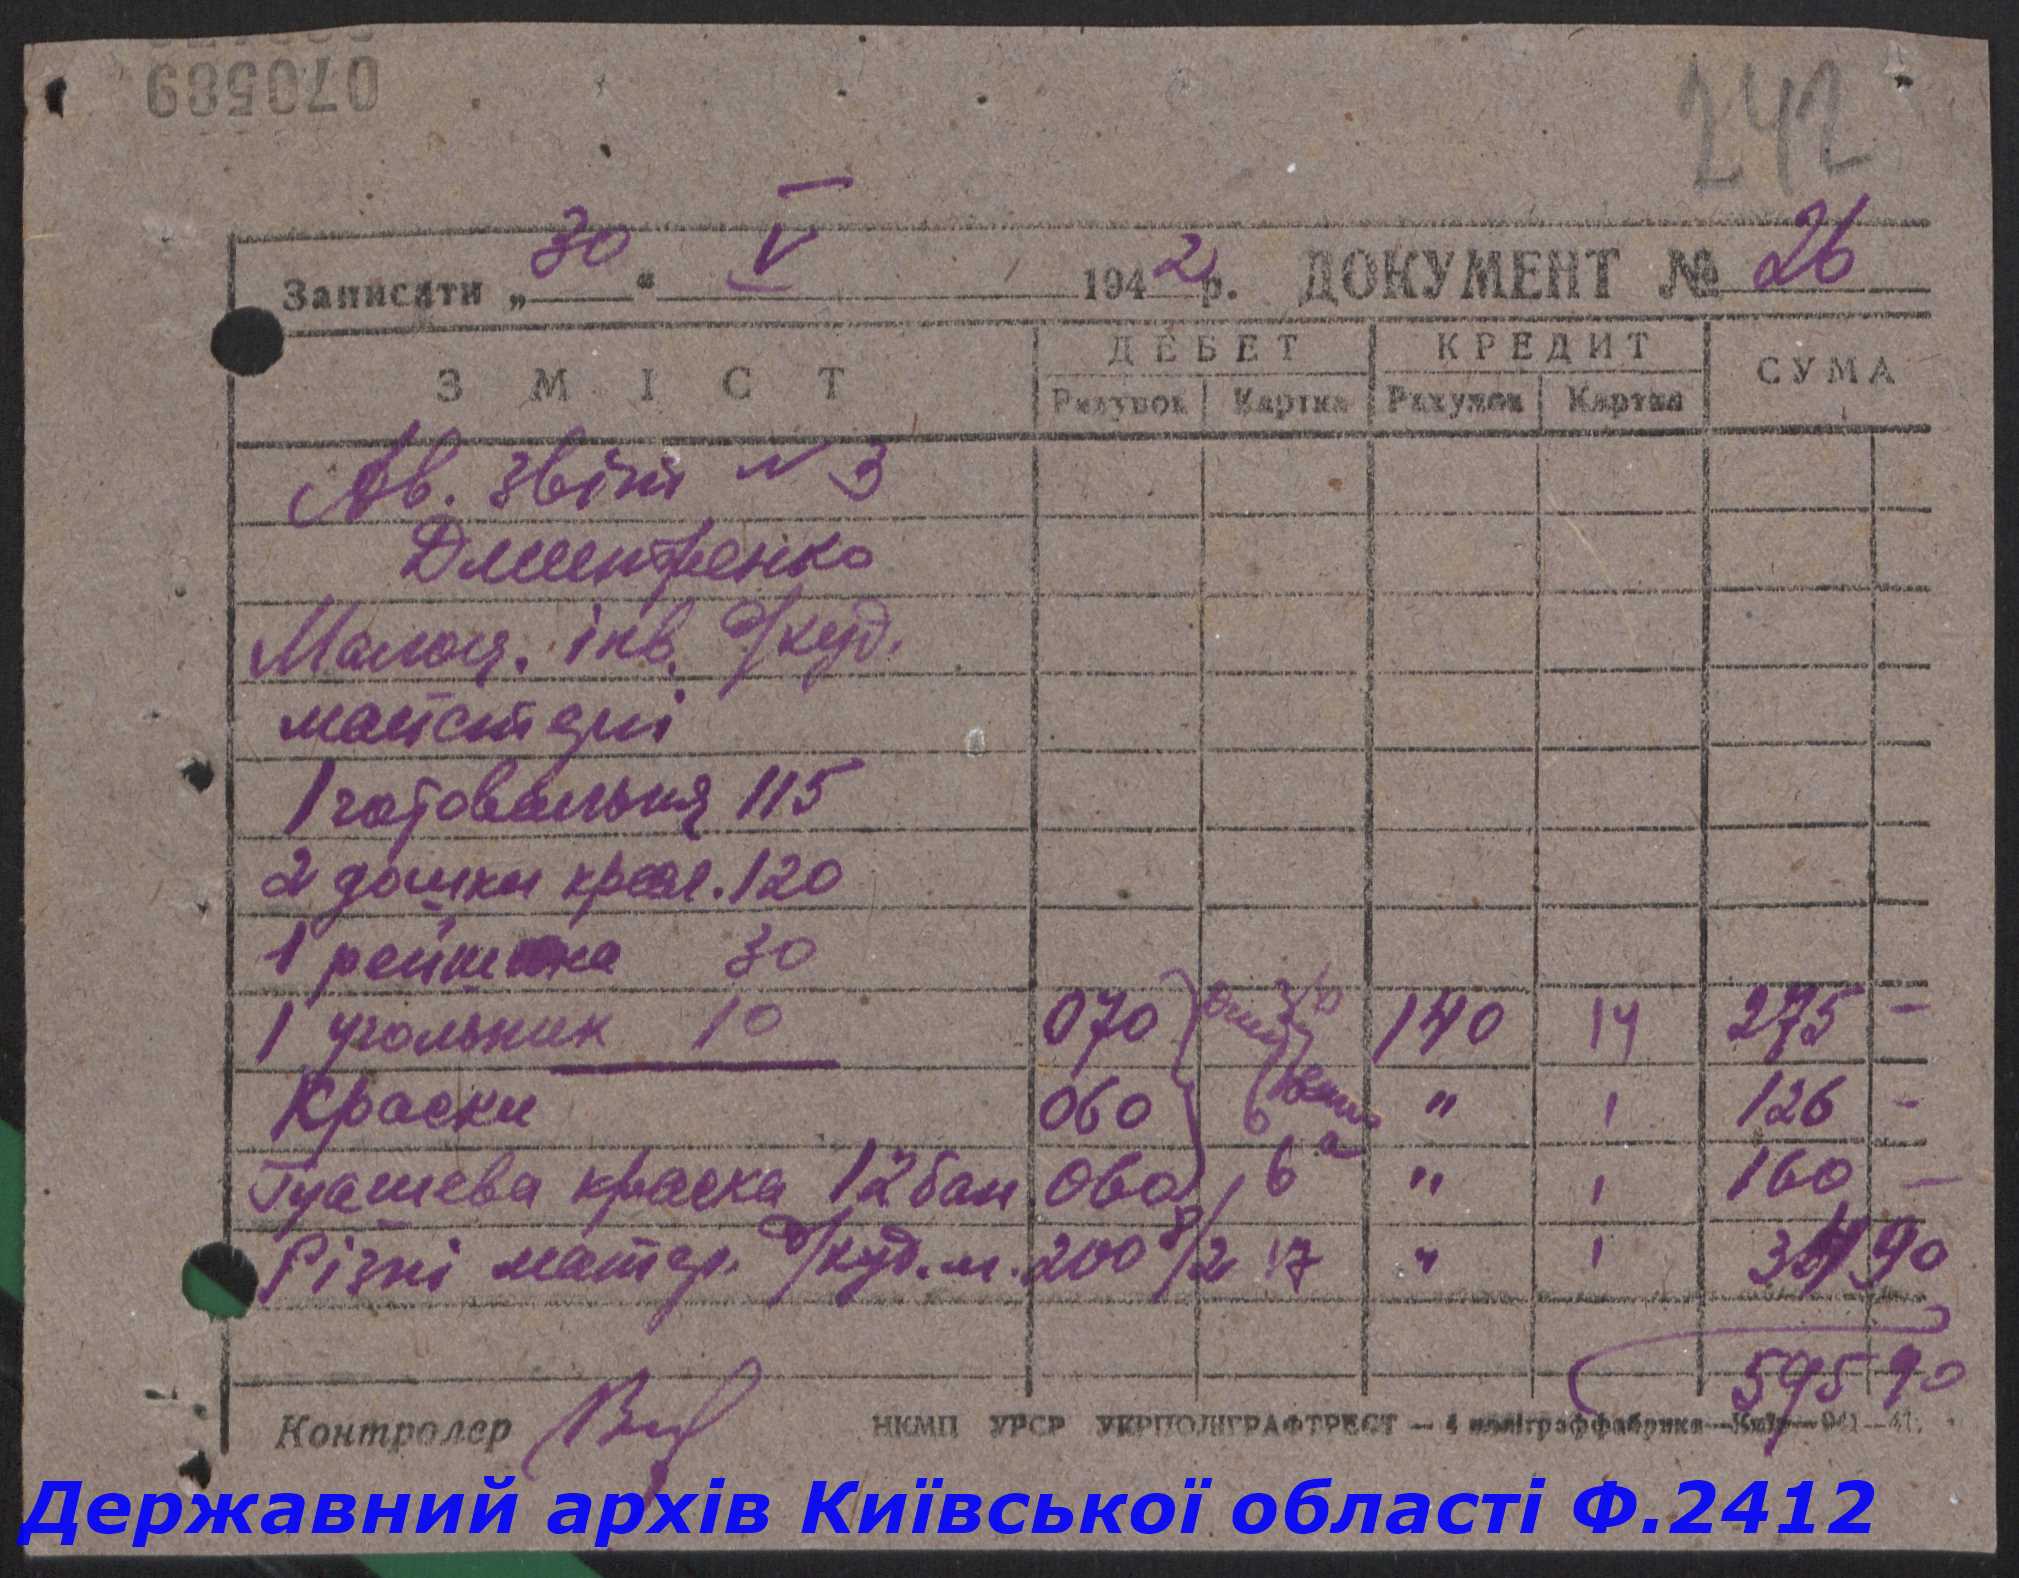 070589
242
Записати „30“ V 1942 р. ДОКУМЕНТ № 26
ЗМІСТ ДЕБЕТ КРЕДИТ СУМА
Рахунок Картка Рахунок Картка
Ав. звіт № 3
Дмитренко
Малоц. інв. д/худ.
майстерні
1 готовальня 115
2 дошки кресл. 120
1 рейшина 30
1 угольник 10 070 140 14 275 –
Краски 060 6 " ' 126 –
Гуашева краска 12 бан 060 6 " ' 160 –
Різні матер. д/худ. м. 200 8/2 17 " ' 34 90
595 90
Контролер
НКМП УРСР УКРПОЛІГРАФТРЕСТ – 4 поліграффабрика – Київ – 941 – 41.
Державний архів Київської області Ф.2412